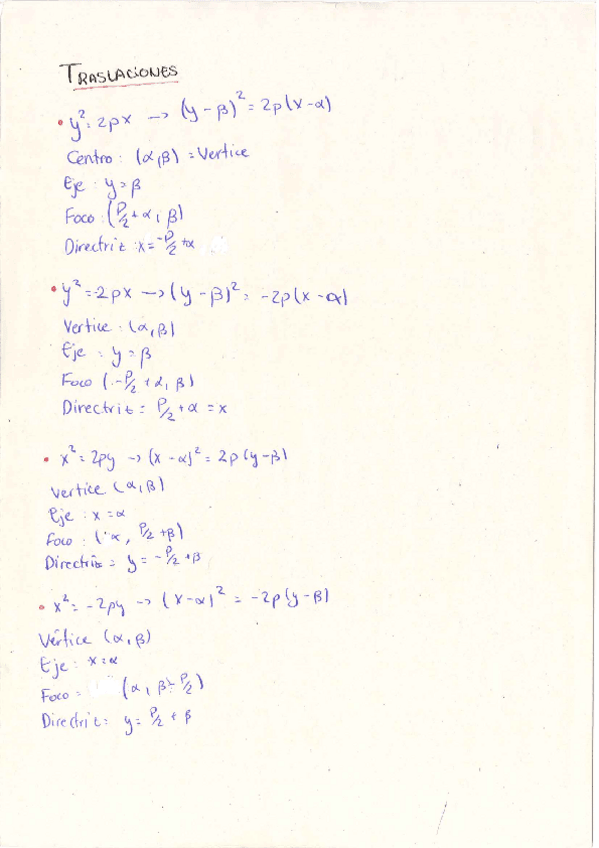 TRASLACIONES
• y² = 2px → (y - β)² = 2p(x-α)
Centro: (α,β) = Vertice
Eje: y = β
Foco: (P/2 + α, β)
Directriz: x = -P/2 + α
• y² = -2px → (y - β)² = -2p(x - α)
Vertice: (α,β)
Eje: y = β
Foco (-P/2 + α, β)
Directriz = P/2 + α = x
• x² = 2py → (x - α)² = 2p(y-β)
Vertice (α,β)
Eje: x = α
Foco: (α, P/2 + β)
Directriz = y = -P/2 + β
• x² = -2py → (x-α)² = -2p(y-β)
Vértice (α, β)
Eje: x = α
Foco = (α, β - P/2)
Directriz: y = P/2 + β